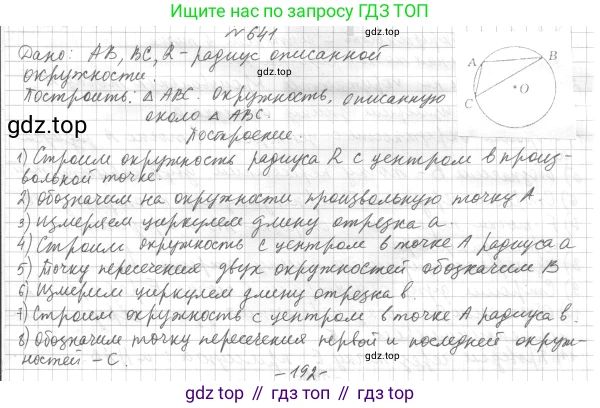 Ищите нас по запросу ГДЗ ТОП
№ 641
Дано: AB, BC, R - радиус описанной
окружности.
Построить: △ ABC. окружность, описанную
около △ ABC.
gdz.top
Построение.
A
B
C
O
1) Строим окружность радиуса R с центром в произ-
вольной точке.
2) Обозначим на окружности произвольную точку A.
3) Измеряем циркулем длину отрезка a.
4) Строим окружность с центром в точке A радиуса a
5) Точку пересечения двух окружностей обозначим B
6) Измерим циркулем длину отрезка b.
7) Строим окружность с центром в точке A радиуса b.
8) Обозначим точку пересечения первой и последней окруж-
ностей - C.
gdz.top
-192-
gdz.top // gdz.top // gdz.top // gdz.top